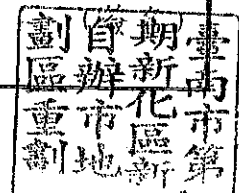 臺南市第
期新化區新
自辦市地
劃區重劃